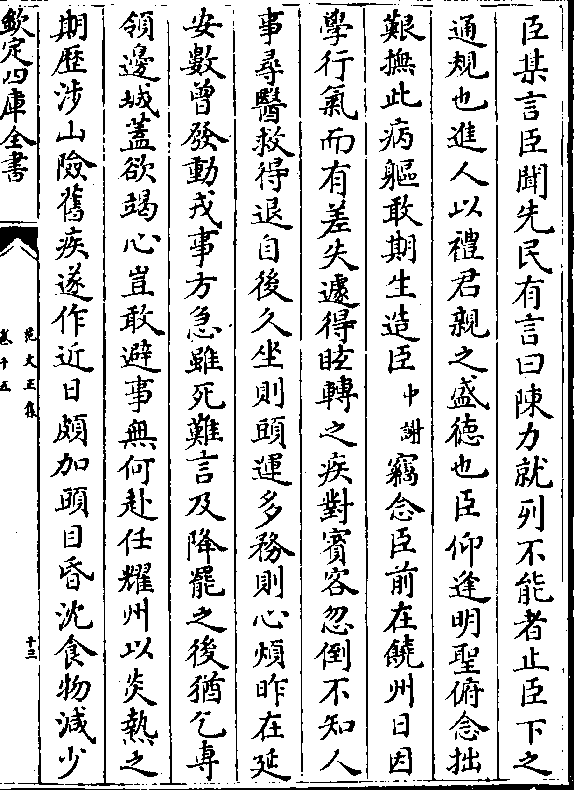 臣某言臣聞先民有言曰陳力就列不能者止臣下之
通規也進人以禮君親之盛德也臣仰逢明聖俯念拙
艱撫此病軀敢期生造臣中謝竊念臣前在饒州日因
學行氣而有差失遽得眩轉之疾對賓客忽倒不知人
事尋醫救得退自後久坐則頭運多務則心煩昨在延
安數曾發動戎事方急雖死難言及降罷之後猶乞專
領邊城蓋欲竭心豈敢避事無何赴任耀州以炎熱之
期歷涉山險舊疾遂作近日頗加頭目昏沈食物減少
欽定四庫全書
范文正集
卷十五
十三